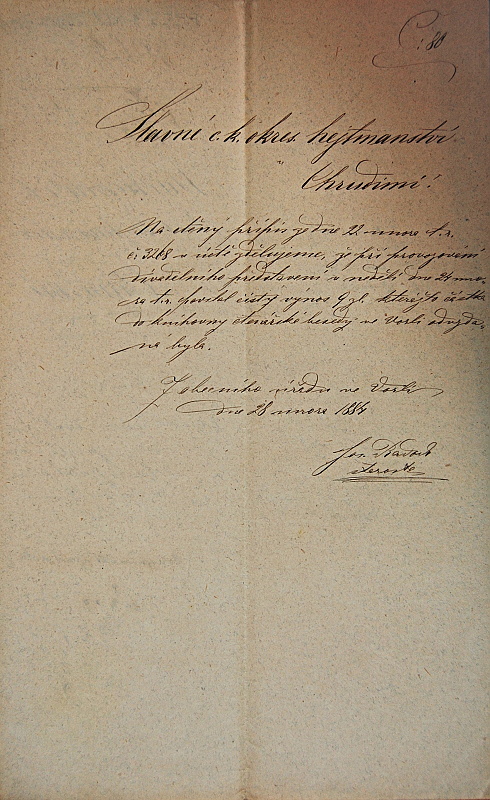 Č: 80
Slavné c. k. okres. hejtmanství
v Chrudimi!
Na ctěný přípis ze dne 22 února t. r.
č. 3268 v úctě sdělujeme, že při provozování
divadelního představení v neděli dne 24 úno-
ra t. r. obnášel čistý výnos 9 zl. kterážto částka
do knihovny čtenářské besedy ve Vorli odevzdá-
na byla.
Z obecního úřadu ve Vorli
dne 28 února 1884
Jos.
starosta